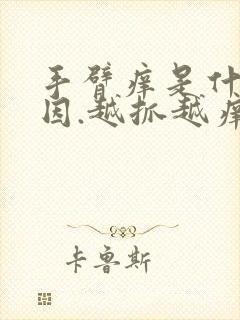 手臂痒是什
因.越抓越痒
卡鲁斯